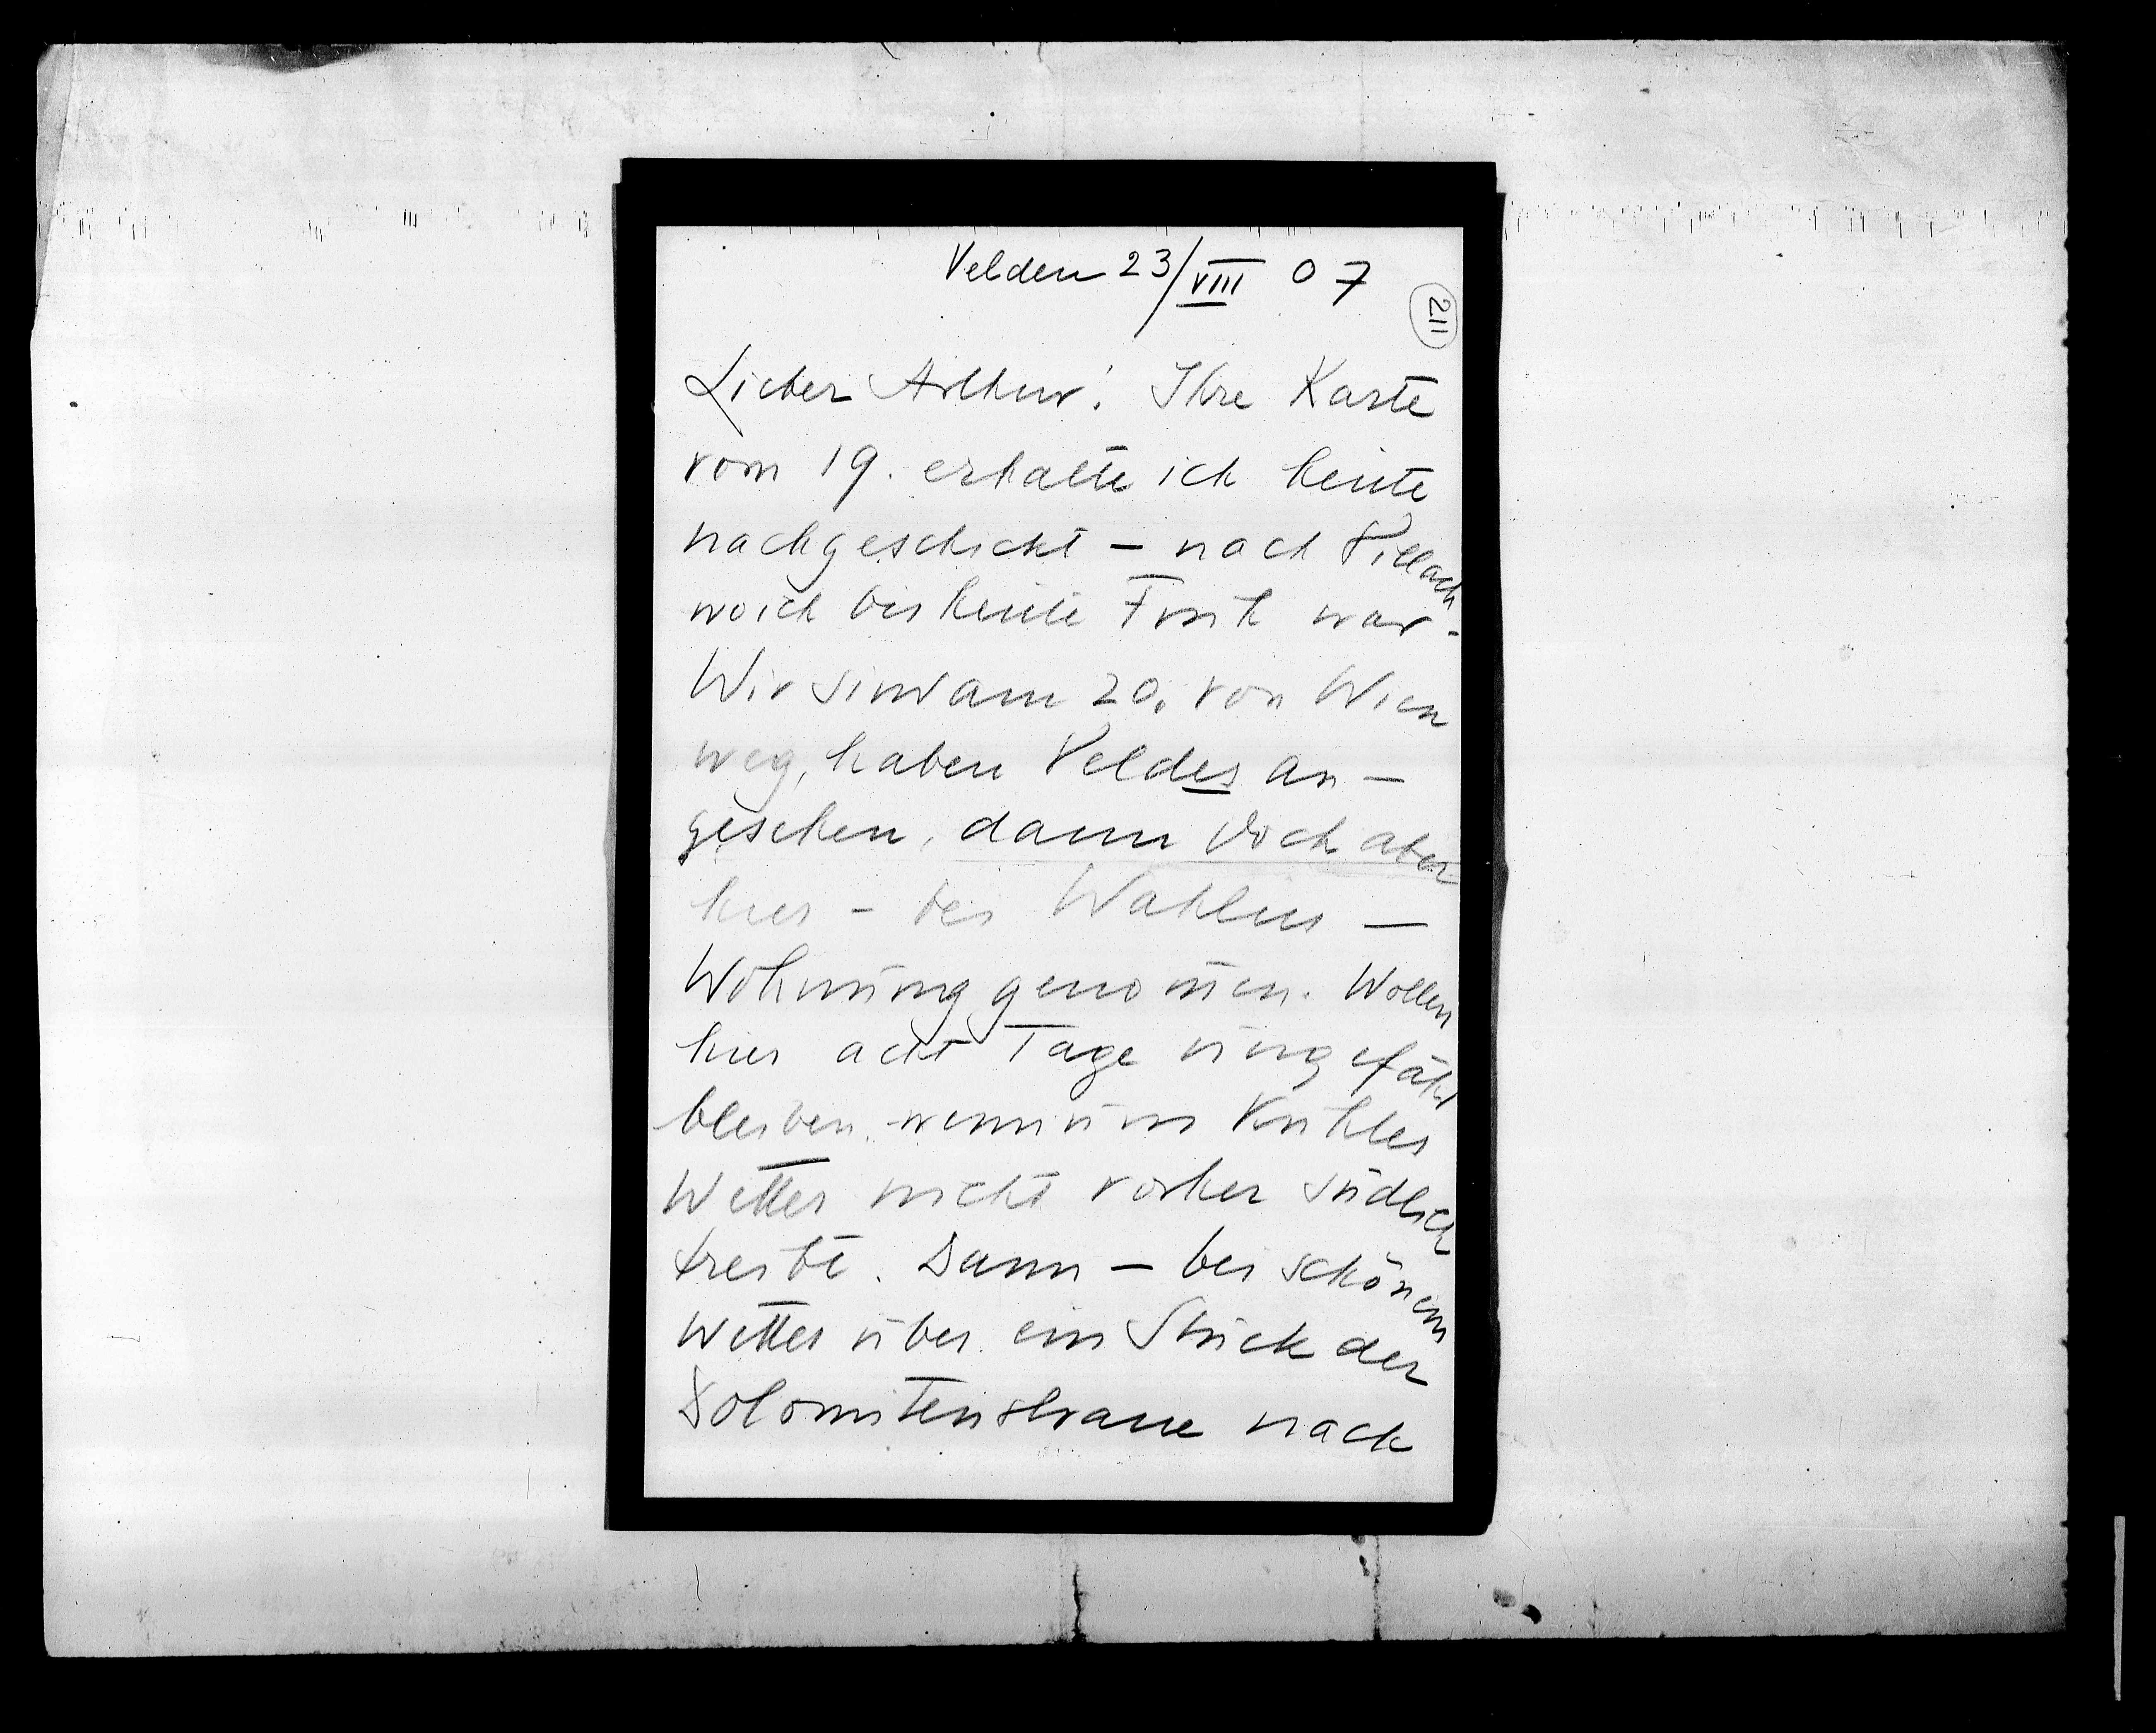 Velden 23/VIII 07
211
Lieber Arthur! Ihre Karte
vom 19. erhalte ich heute
nachgeschickt – nach Villach
wo ich bis heute Früh war.
Wir sind am 20. von Wien
weg, haben Veldes an–
gesehen, dann doch aber
hier – bei Wahliss –
Wohnung genom̄en. Wollen
hier acht Tage ungefähr
bleiben, wenn uns kühles
Wetter nicht vorher südlich
treibt. Dann – bei schönem
Wetter über ein Stück der
Dolomitenstrasse nach